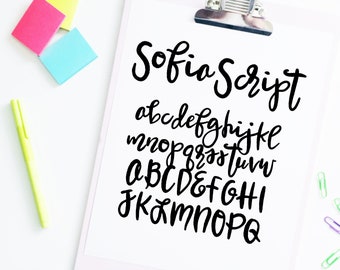 Sofia Script
abcdefghijkl
mnopqrsstuvw
ABCDEFGHI
JKLMNOPQ